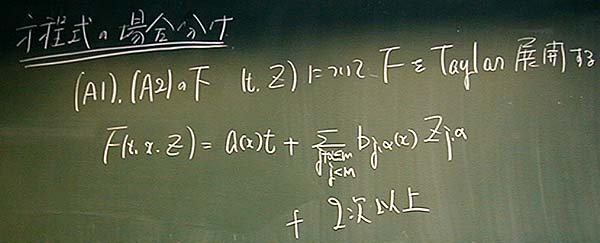 方程式の場合分け
(A1), (A2)の下 (t, Z)について F を Taylor 展開する
F(t, x, Z) = a(x)t + Σ_{j+α≤m, j<m} b_{j,α}(x) Z_{j,α}
+ 2次以上